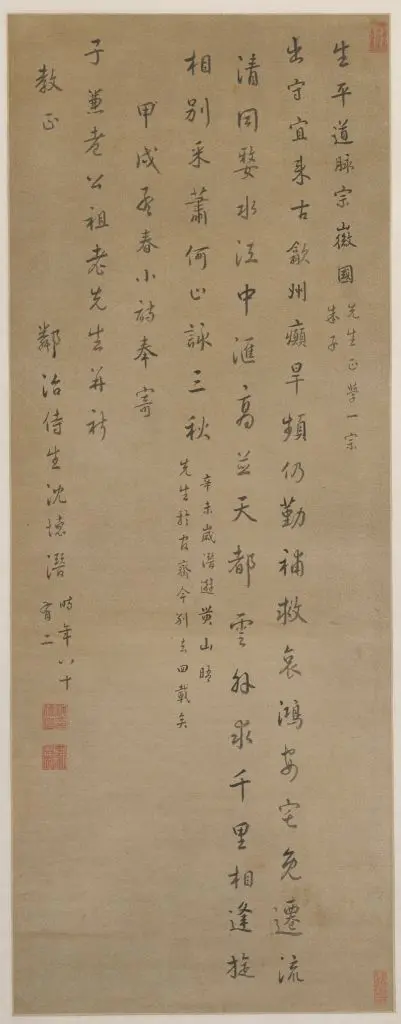 生平道脈宗徽國
先生正學一宗
朱子
出守宜来古歙州旱頻仍勤補救哀鴻安宅免遷流
清同婺水江中滙高並天都雲外求千里相逢旋
相別采蕭何止詠三秋
辛未歲潛遊黄山晤
先生於官齋今別去四載矣
甲戌春小詩奉寄
子老公祖老先生并祈
教正
鄰治侍生沈德潛
時年八十
有二